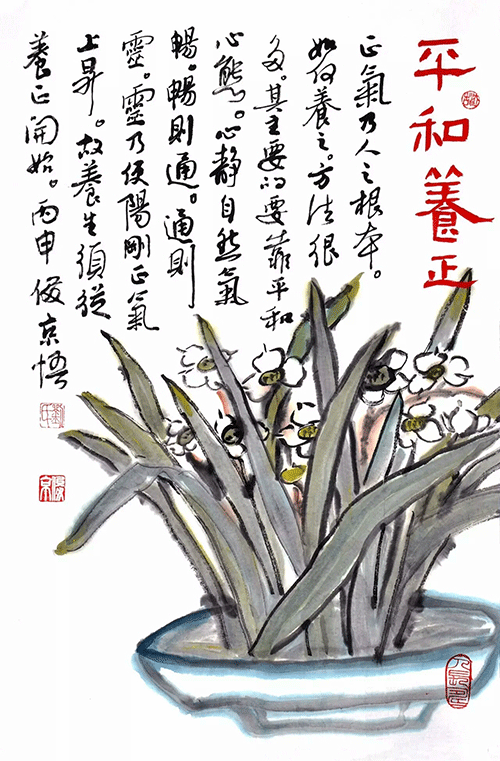 平和養正
正氣乃人之根本。
如何養之。方法很
多。其主要的要靠平和
心態。心靜自然氣
暢。暢則通。通則
靈。靈乃使陽剛正氣
上昇。故養生須從
養正開始。丙申俊京悟